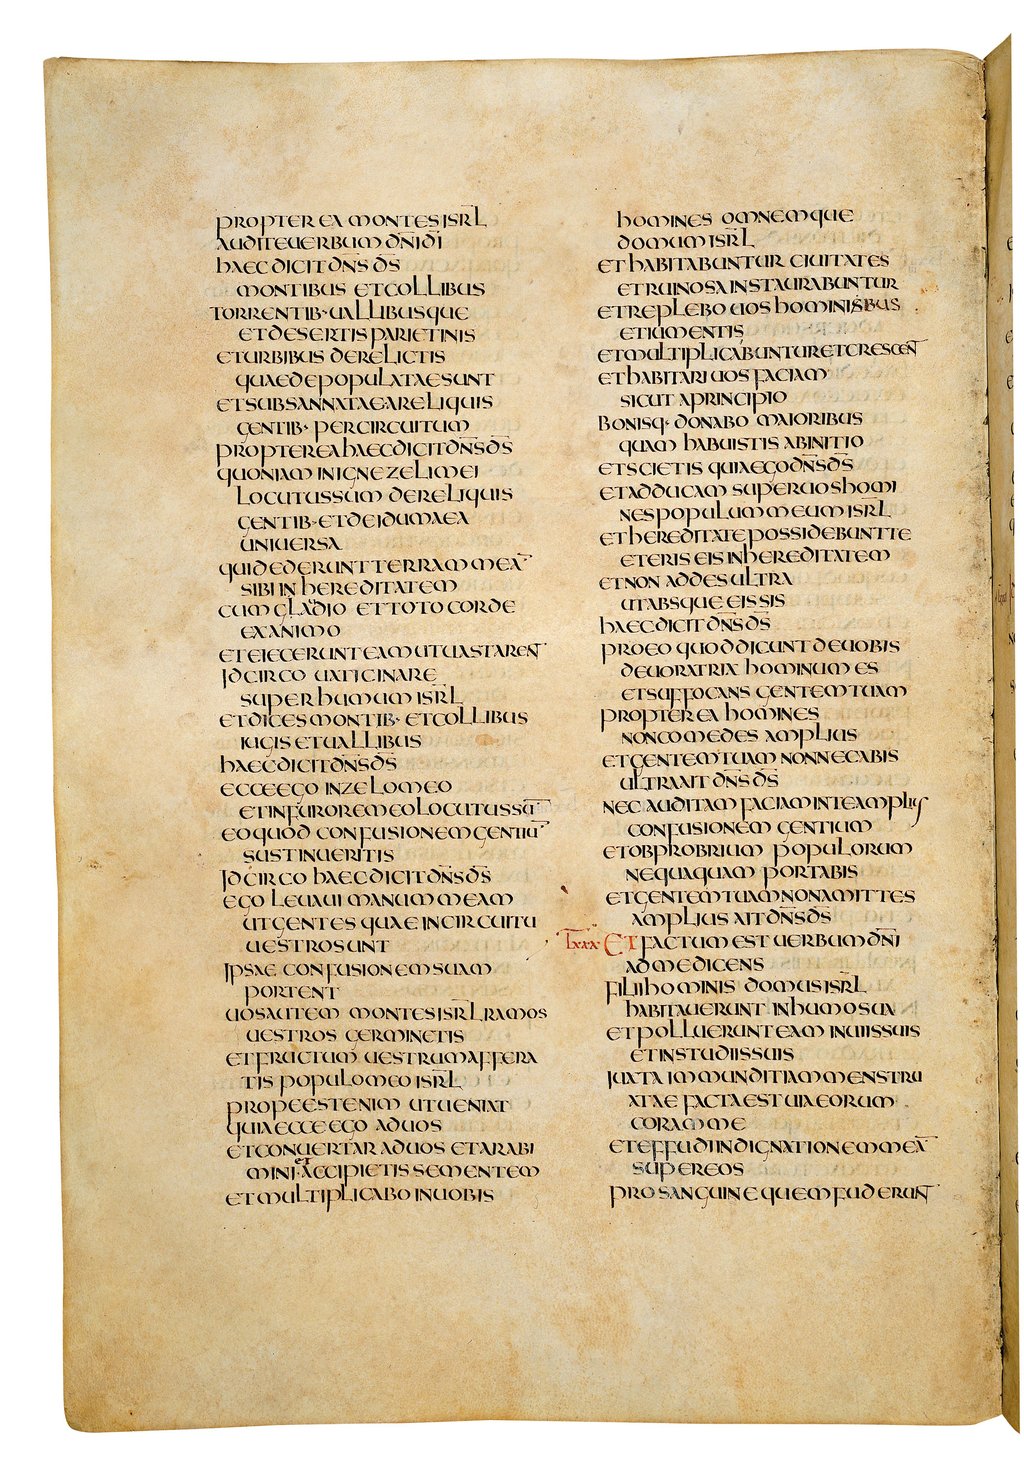 propterea montes isrl̄
audite uerbum dn̄i dī
haec dicit dn̄s ds̄
montibus et collibus
torrentib· uallibusque
et desertis parietinis
et urbibus derelictis
quae depopulatae sunt
et subsannatae a reliquis
gentib· per circuitum
propterea haec dicit dn̄s ds̄
quoniam in igne zeli mei
locutus sum de reliquis
gentib· et de idumaea
uniuersa
qui dederunt terram meā
sibi in hereditatem
cum gladio et toto corde
ex animo
et eiecerunt eam ut uastarent
Idcirco uaticinare
super humum isrl̄
et dices montib· et collibus
iugis et uallibus
haec dicit dn̄s ds̄
ecce ego in zelo meo
et in furore meo locutus sū
eo quod confusionem gentiū
sustinueritis
Idcirco haec dicit dn̄s ds̄
ego leuaui manum meam
ut gentes quae in circuitu
uestro sunt
Ipsae confusionem suam
portent
uos autem montes isrl̄ ramos
uestros germinetis
et fructum uestrum affera
tis populo meo isrl̄
prope est enim ut ueniat
quia ecce ego ad uos
et conuertar ad uos et arabi
mini et accipietis sementem
et multiplicabo in uobis
homines omnemque
domum isrl̄
et habitabuntur ciuitates
et ruinosa instaurabuntur
et replebo uos hominibus
et iumentis
et multiplicabuntur et crescent
et habitari uos faciam
sicut a principio
bonisq· donabo maioribus
quam habuistis ab initio
et scietis quia ego dn̄s ds̄
et adducam super uos homi
nes populum meum isrl̄
et hereditate possidebunt te
et eris eis in hereditatem
et non addes ultra
ut absque eis sis
haec dicit dn̄s ds̄
pro eo quod dicunt de uobis
deuoratrix hominum es
et suffocans gentem tuam
propterea homines
non comedes amplius
et gentem tuam non necabis
ultra ait dn̄s ds̄
nec auditam faciam in te amplius
confusionem gentium
et obprobrium populorum
nequaquam portabis
et gentem tuam non amittes
amplius ait dn̄s ds̄
lxxx Et factum est uerbum dn̄i
ad me dicens
fili hominis domus isrl̄
habitauerunt in humo sua
et polluerunt eam in uiis suis
et in studiis suis
iuxta immunditiam menstru
atae facta est uia eorum
coram me
et effudi indignationem meā
super eos
pro sanguine quem fuderunt